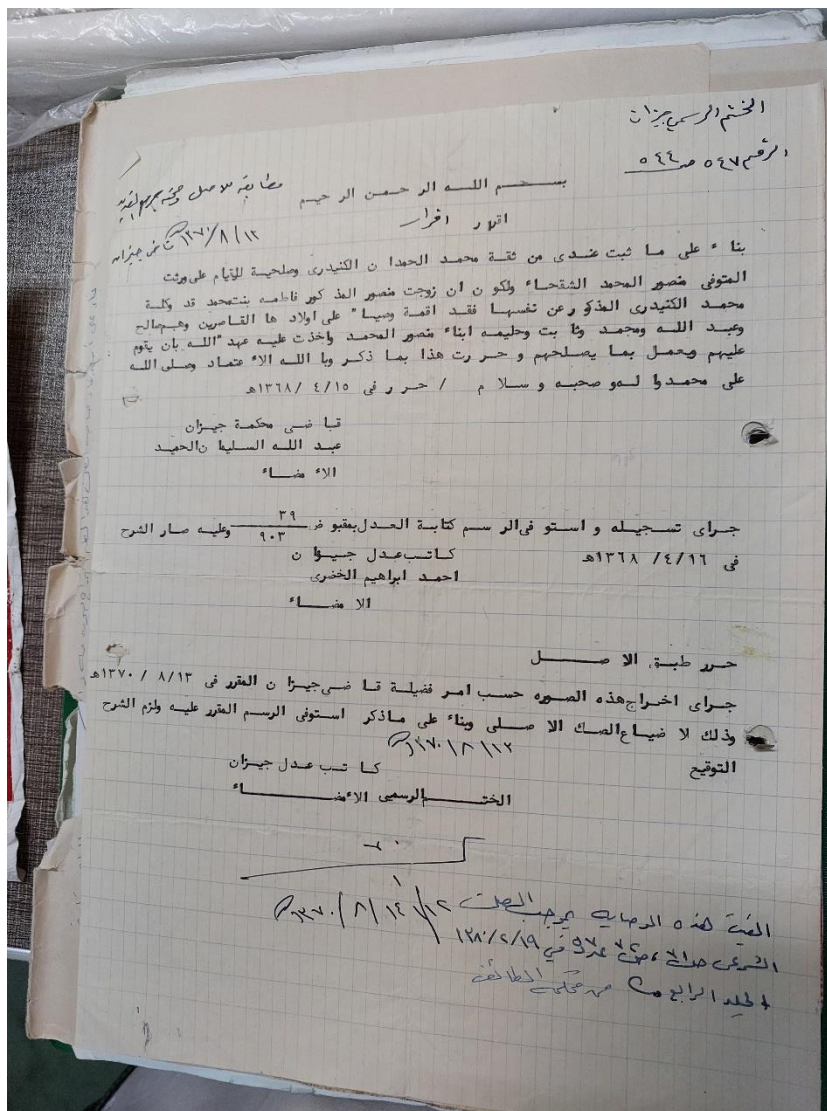 الختم الرسمي جيزان
الرقم ٥٤٧ ص ٥٤٤
بسم الله الرحمن الرحيم
مطابقة للاصل
١٣٧٠/٨/١٣ قاضي جيزان
اقرار
بناء على ما ثبت عندى من ثقة محمد الحمدان الكنيدرى وصلحية للقيام على ورثت
المتوفى منصور المحمد الشقحاء ولكون ان زوجت منصور المذكور فاطمه بنت محمد قد وكلة
محمد الكنيدرى المذكور عن نفسها فقد اقمة وصيا" على اولادها القاصرين وهم صالح
وعبد الله ومحمد وثابت وحليمه ابناء منصور المحمد واخذت عليه عهد" الله بان يقوم
عليهم ويعمل بما يصلحهم وحررت هذا بما ذكر وبا الله الاعتماد وصلى الله
على محمد والهو صحبه وسلام / حرر فى ١٣٦٨/٤/١٥هـ
قاضى محكمة جيزان
عبد الله السليمان الحميد
الامضاء
جراى تسجيله واستوفى الرسم كتابة العدل بمقبوض ٣٩/٩٠٣ وعليه صار الشرح
فى ١٣٦٨/٤/١٦هـ
كاتب عدل جيوان
احمد ابراهيم الخضرى
الامضاء
حرر طبق الاصل
جراى اخراج هذه الصوره حسب امر فضيلة قاضى جيزان المقرر فى ١٣٧٠/٨/١٣هـ
وذلك لاضياع الصك الاصلى وبناء على ماذكر استوفى الرسم المقرر عليه ولزم الشرح
١٣٧٠/٨/١٣
التوقيع
كاتب عدل جيزان
الختم الرسمى الامضاء
١٣٧٠/٨/١٤
الغيت هذه الوصايه بموجب الصك
الشرعى في ١٣٨٠/٢/١٩
الجلد الرابع من محكمة الطائف